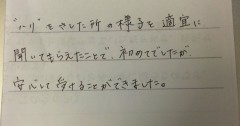 "ハリ"をさした所の様子を適宜に
聞いてもらえたことで、初めてでしたが、
安心して受けることができました。